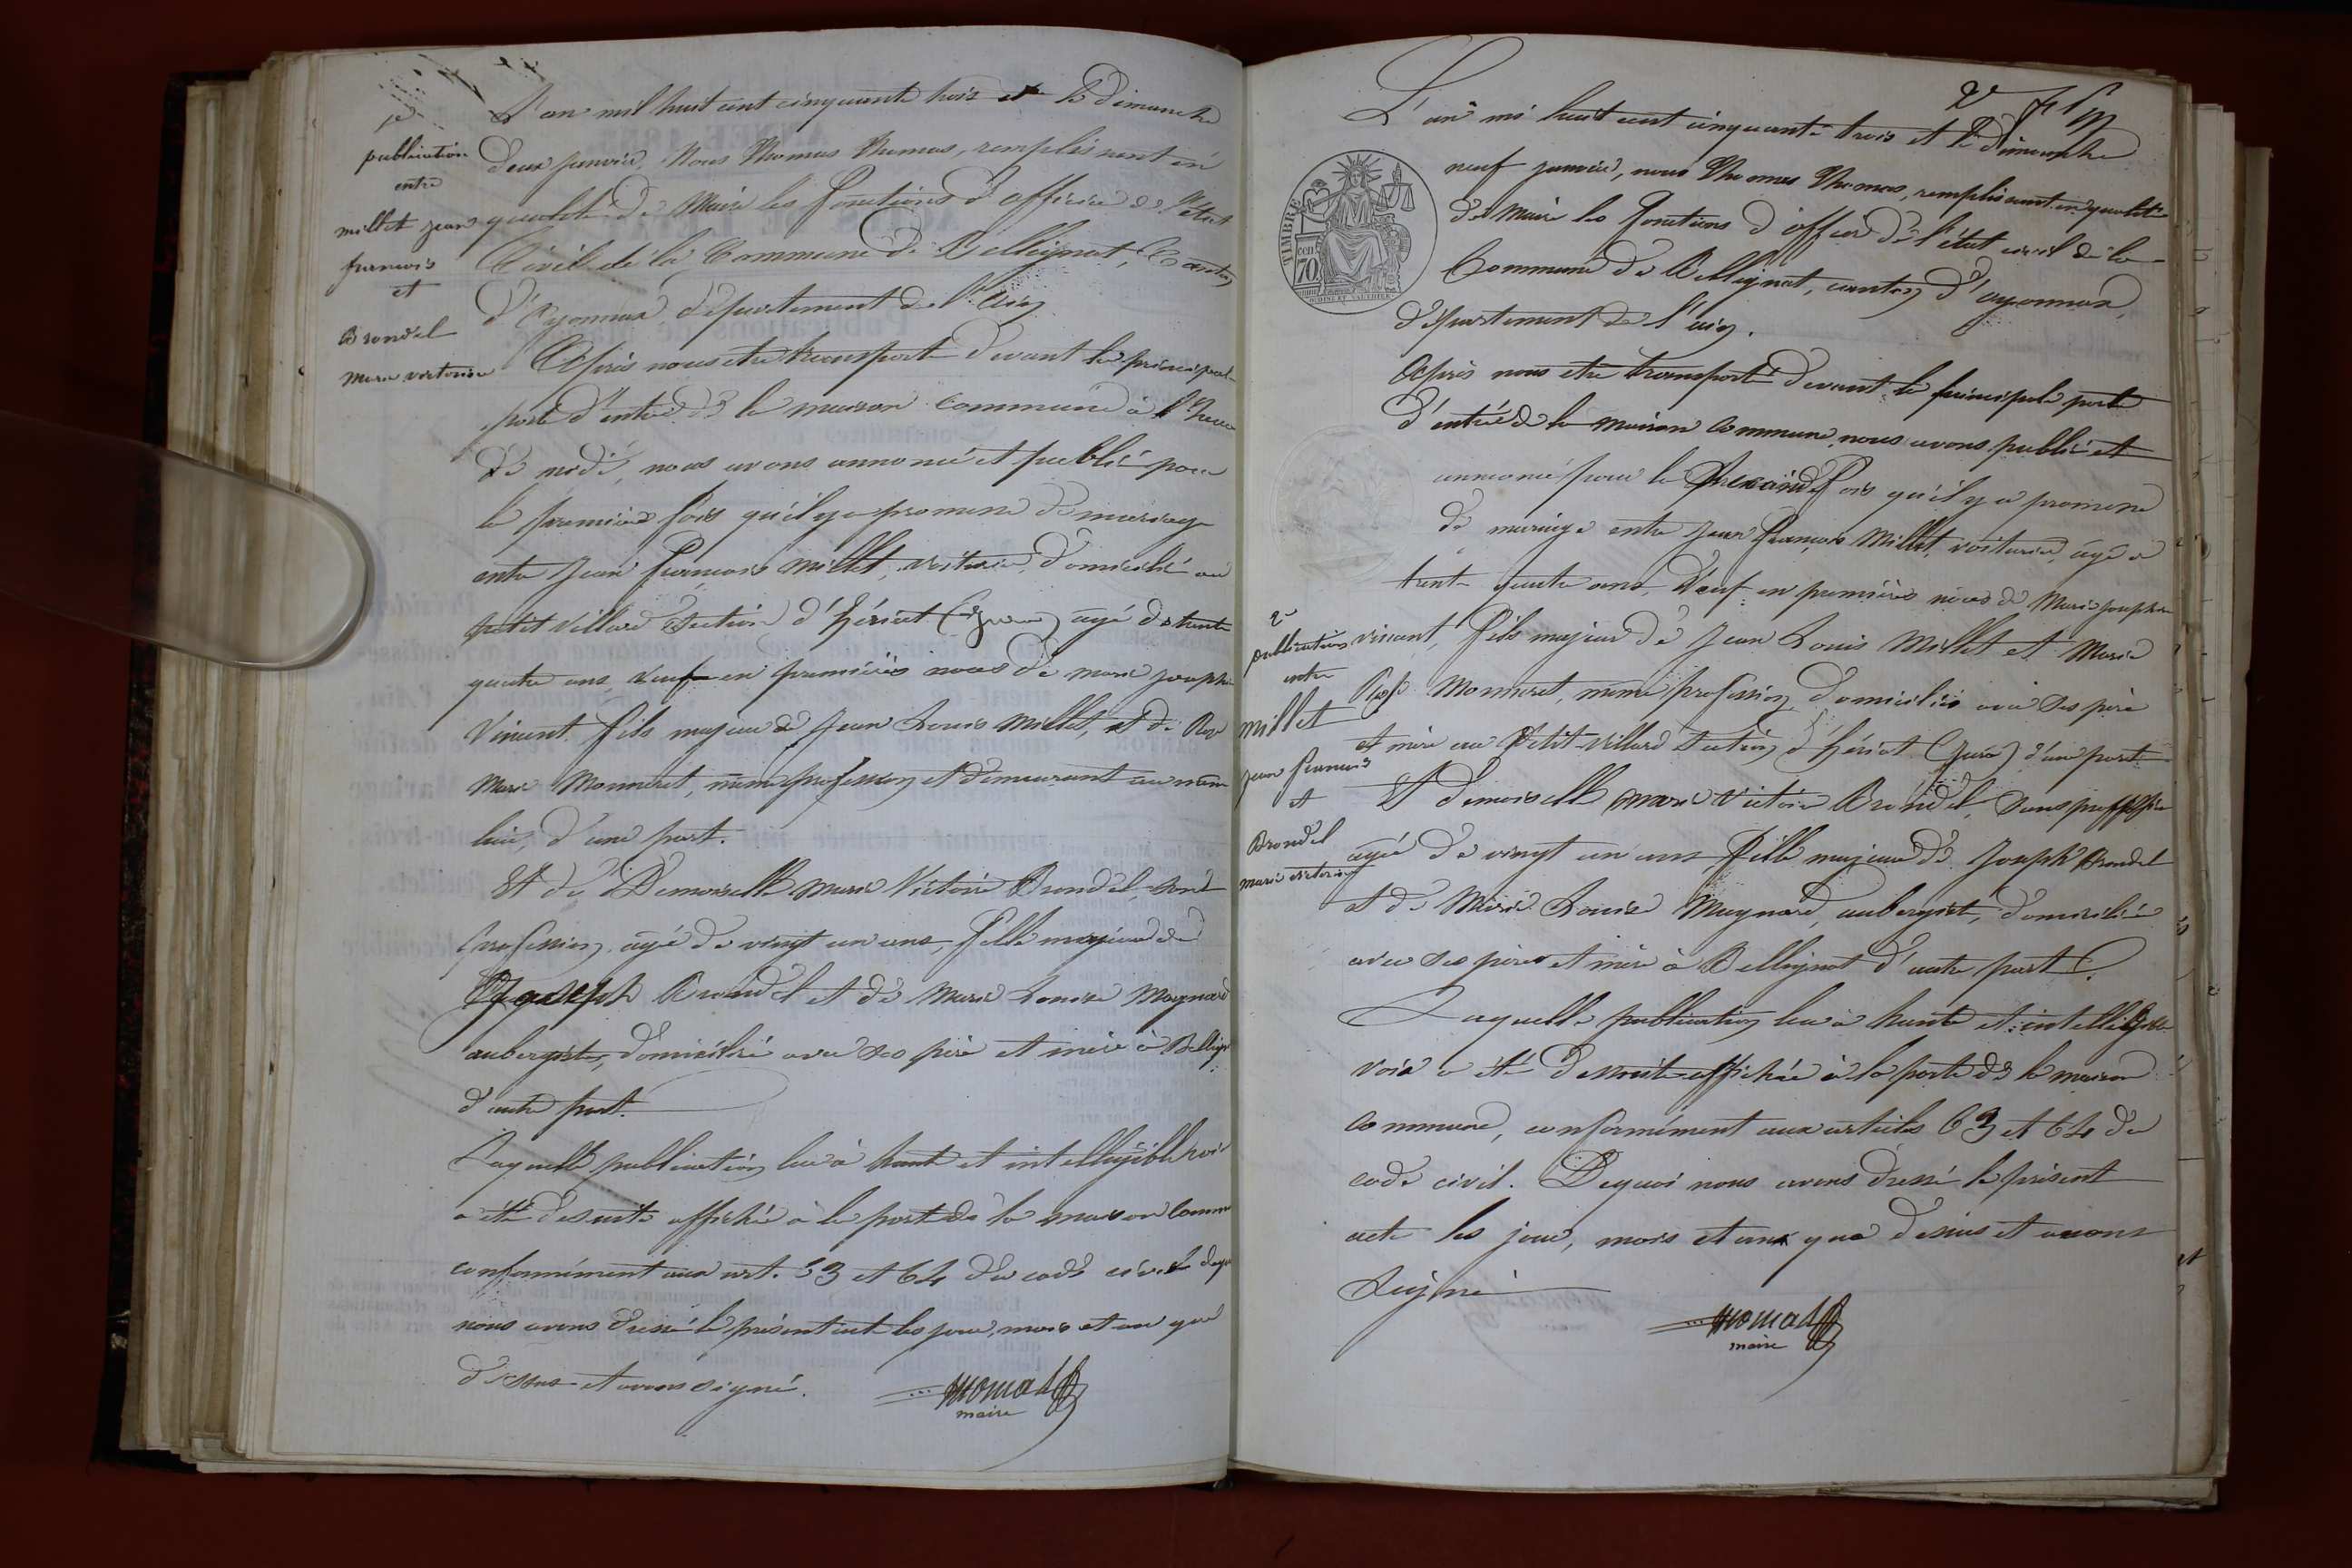 1e
publication
entre
millet jean
francois
et
Brondel
Marie victoire
L'an mil huit cent cinquante trois et le Dimanche
deux janvier, Nous Thomas Thomas, remplissant en
qualité de Maire les fonctions d'officier de l'état
Civil de la Commune de Bellignat, Canton
d'Oyonnax département de l'ain
Après nous etre transporté devant la principal
porte d'entrée de la maison commune à l'heure
de midi, nous avons annoncé et publié pour
la premiere fois qu'il y a promesse de mariage
entre Jean francois Millet, voiturier, domicilié au
petit Villard Section d'hériat (Jura) agé de trente
quatre ans, veuf en premières noces de marie josephe
Vincent fils majeur de Jean Louis Millet, et de Rose
Marie Monneret, même profession et demeurant au même
lieu, d'une part.
Et de Demoiselle Marie Victoire Brondel, sans
profession, agée de vingt un ans, fille majeure de
Joseph Brondel et de Marie Louise Maynard
aubergiste, domicilié avec ses père et mère à Bellign
d'autre part.
Laquelle publication lue à haute et intelligible voix
a été desuite affichée à la porte de la maison Commu
conformément aux art. 63 et 64 du code civil dequoi
nous avons dressé le présent acte les jour, mois et an que
dessus et avons signé.
Thomas
maire
2e
L'an mi huit cent cinquante trois et le Dimanche
neuf janvier, nous Thomas Thomas, remplissant en qualité
de Maire les fonctions d'officier de l'état civil de la
Commune de Bellignat, canton d'oyonnax,
département de l'ain.
TIMBRE
cen
70
Après nous etre transporté devant la principale porte
d'entrée de la maison Commune, nous avons publié et
annoncé pour la seconde fois qu'il y a promesse
de mariage entre Jean François Millet, voiturier, agé de
trente quatre ans, veuf en premières noces de Marie josephe
vincent, fils majeur de Jean Louis Millet et Marie
Rose Monneret, même profession, domiciliés avec ses père
et mère au Petit-Villard section d'hériat (Jura) d'une part
Et demoiselle Marie Victoire Brondel, sans proffession
agée de vingt un ans fille majeure de Joseph Brondel
et de Marie Louise Maynard, aubergiste, domiciliée
avec ses père et mère à Bellignat d'autre part.
2e
publication
entre
millet
jean francois
et
Brondel
marie victoire
Laquelle publication lue à haute et intelligible
voix a été desuite affichée à la porte de la maison
Commune, conformément aux articles 63 et 64 du
code civil. Dequoi nous avons dressé le présent
acte les jour, mois et an que dessus et avons
signé
Thomas
maire